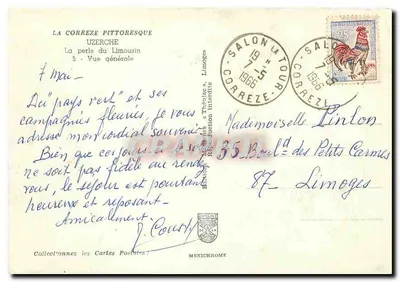 LA CORREZE PITTORESQUE
UZERCHE
La perle du Limousin
5 - Vue générale
7 Mai -
Du "pays vert" et ses
campagnes fleuries, je vous
adresse mon cordial souvenir.
Bien que ce jour le
ne soit pas fidèle au rendez
vous, le séjour est pourtant
heureux et reposant -
Amicalement.
Collectionnez les Cartes Postales !
"Théojac", Limoges
Reproduction interdite
MEXICHROME
SALON LA TOUR
19 H
7-5
1966
CORREZE
SALON LA TOUR
19 H
7-5
1966
CORREZE
Mademoiselle Linlon
35 Boul.d des Petits Carmes
87- Limoges